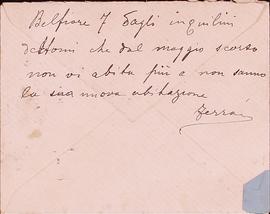 Belfiore 7 dagli inquilini
che dal maggio scorso
non vi abita più e non sanno
la sua nuova abitazione